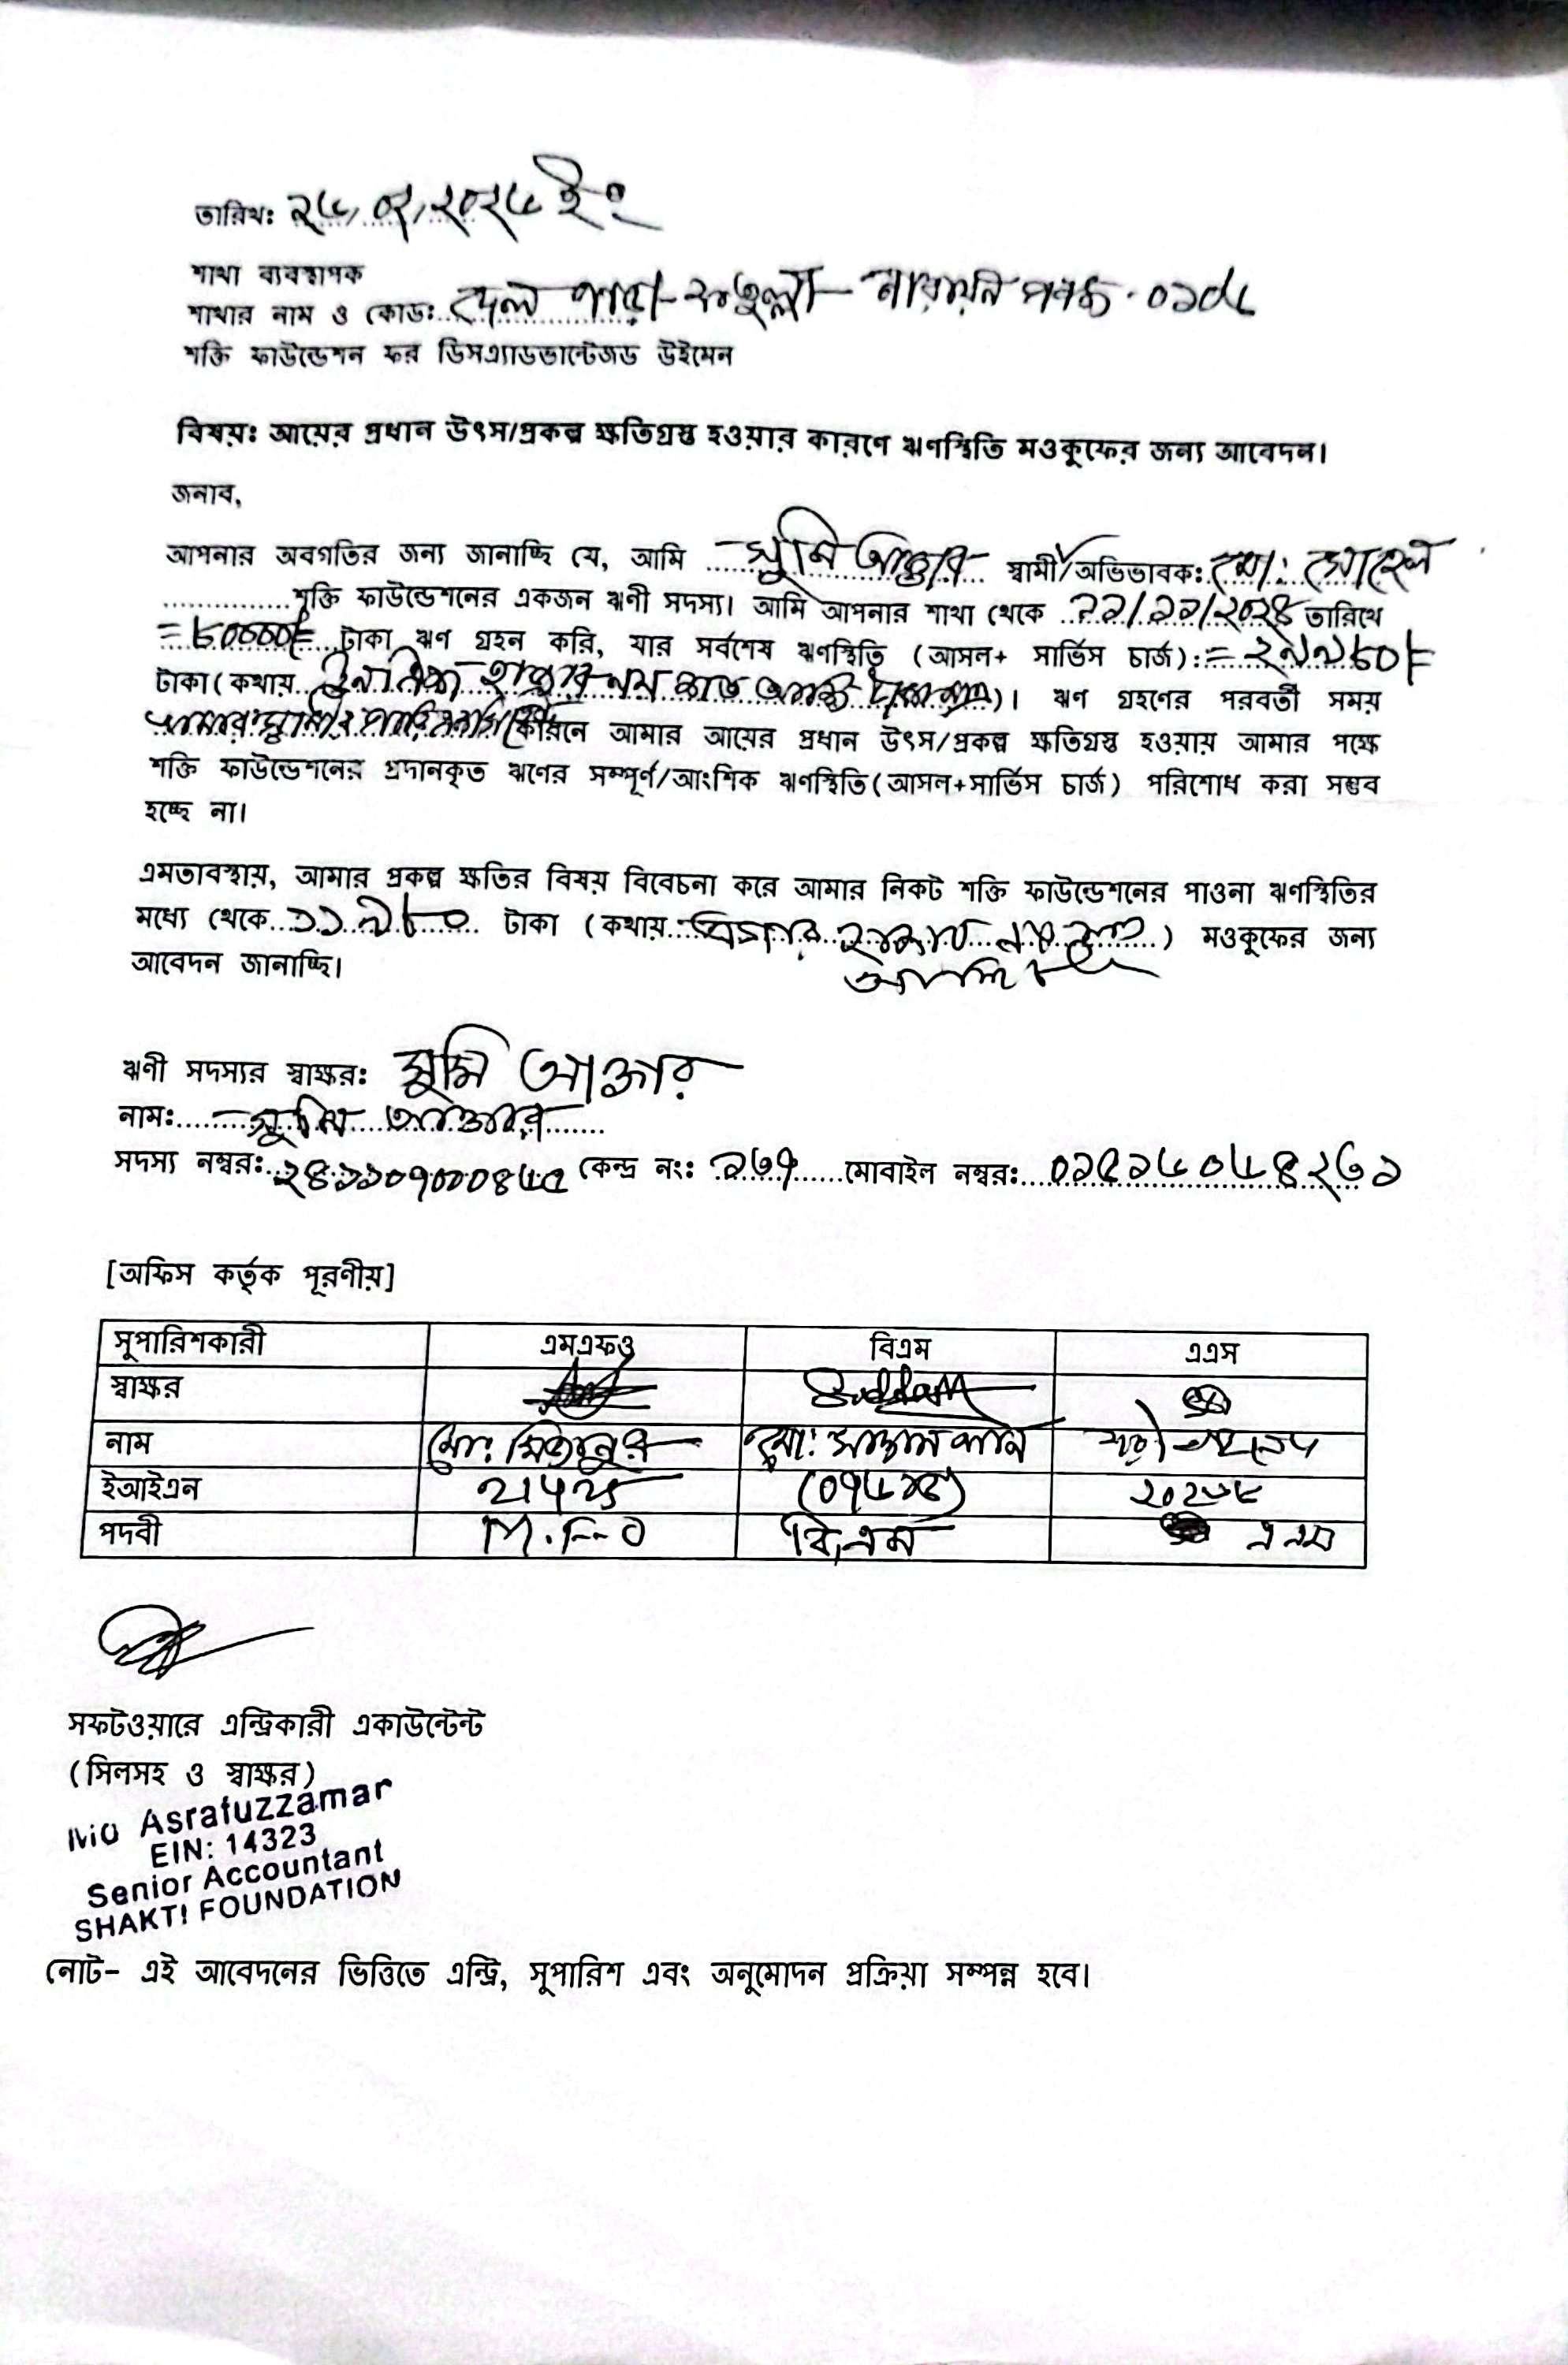 তারিখ: ২৬/০২/২০২৬ ইং
শাখা ব্যবস্থাপক
শাখার নাম ও কোড: দেল পাড়া- ফতুল্লা-
শক্তি ফাউন্ডেশন ফর ডিসএ্যাডভান্টেজড উইমেন
বিষয়: আয়ের প্রধান উৎস/প্রকল্প ক্ষতিগ্রস্ত হওয়ার কারণে ঋণস্থিতি মওকুফের জন্য আবেদন।
জনাব,
আপনার অবগতির জন্য জানাচ্ছি যে, আমি সুমি আক্তার স্বামী/অভিভাবক: মো: সোহেল
শক্তি ফাউন্ডেশনের একজন ঋণী সদস্য। আমি আপনার শাখা থেকে ১১/১১/২০২৪ তারিখে
=৮০০০০/= টাকা ঋণ গ্রহন করি, যার সর্বশেষ ঋণস্থিতি (আসল+ সার্ভিস চার্জ): = ২৯৯৮০/=
টাকা (কথায় উনত্রিশ হাজার নয় শত আশি টাকা মাত্র)। ঋণ গ্রহণের পরবর্তী সময়
আমার স্বামীর কারিনে আমার আয়ের প্রধান উৎস/প্রকল্প ক্ষতিগ্রস্ত হওয়ায় আমার পক্ষে
শক্তি ফাউন্ডেশনের প্রদানকৃত ঋণের সম্পূর্ণ/আংশিক ঋণস্থিতি(আসল+সার্ভিস চার্জ) পরিশোধ করা সম্ভব
হচ্ছে না।
এমতাবস্থায়, আমার প্রকল্প ক্ষতির বিষয় বিবেচনা করে আমার নিকট শক্তি ফাউন্ডেশনের পাওনা ঋণস্থিতির
মধ্যে থেকে ১১৯৮০ টাকা (কথায় এগার হাজার নয় শত) মওকুফের জন্য
আবেদন জানাচ্ছি।
ঋণী সদস্যর স্বাক্ষর: সুমি আক্তার
নাম: সুমি আক্তার
সদস্য নম্বর: কেন্দ্র নং: ১৬৭ মোবাইল নম্বর: ০১৫১৬০৬৪২৬১
[অফিস কর্তৃক পূরণীয়]
সুপারিশকারী এমএফও বিএম এএস
স্বাক্ষর
নাম মো: মিজানুর মো:
ইআইএন (০৭৬১৫)
পদবী M.F.O বি,এম
সফটওয়ারে এন্ট্রিকারী একাউন্টেন্ট
(সিলসহ ও স্বাক্ষর)
Md Asrafuzzamar
EIN: 14323
Senior Accountant
SHAKTI FOUNDATION
নোট- এই আবেদনের ভিত্তিতে এন্ট্রি, সুপারিশ এবং অনুমোদন প্রক্রিয়া সম্পন্ন হবে।